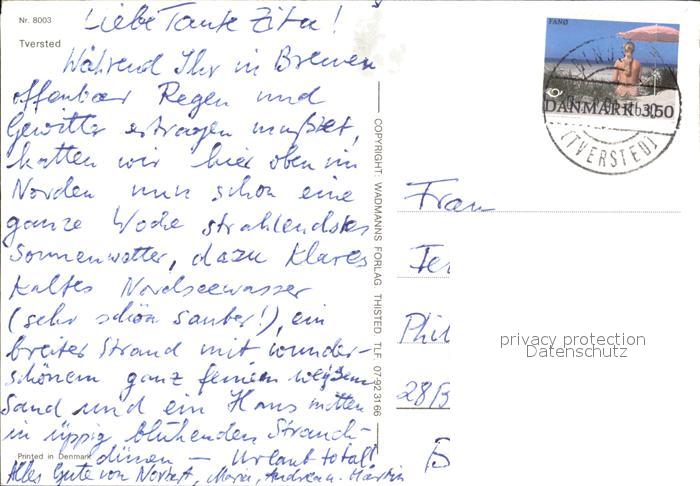 Nr. 8003
Tversted
Liebe Tante Zita!
Während Ihr in Bremen
offenbar Regen und
Gewitter ertragen mußtet,
hatten wir hier oben im
Norden nun schon eine
ganze Woche strahlendstes
Sonnenwetter, dazu klares
kaltes Nordseewasser
(sehr schön sauber!), ein
breiter Strand mit wunder-
schönem ganz feinem weißem
Sand und ein Haus mitten
in üppig blühenden Strand-
dünen — Urlaub total!
Printed in Denmark
Alles Gute von Norbert, Maria, Andrea u. Martin
COPYRIGHT: WADMANNS FORLAG THISTED TLF. 07-92 31 66
FANØ
DANMARK 3.50
(TVERSTED)
Frau
Phil
28/3
B
privacy protection
Datenschutz